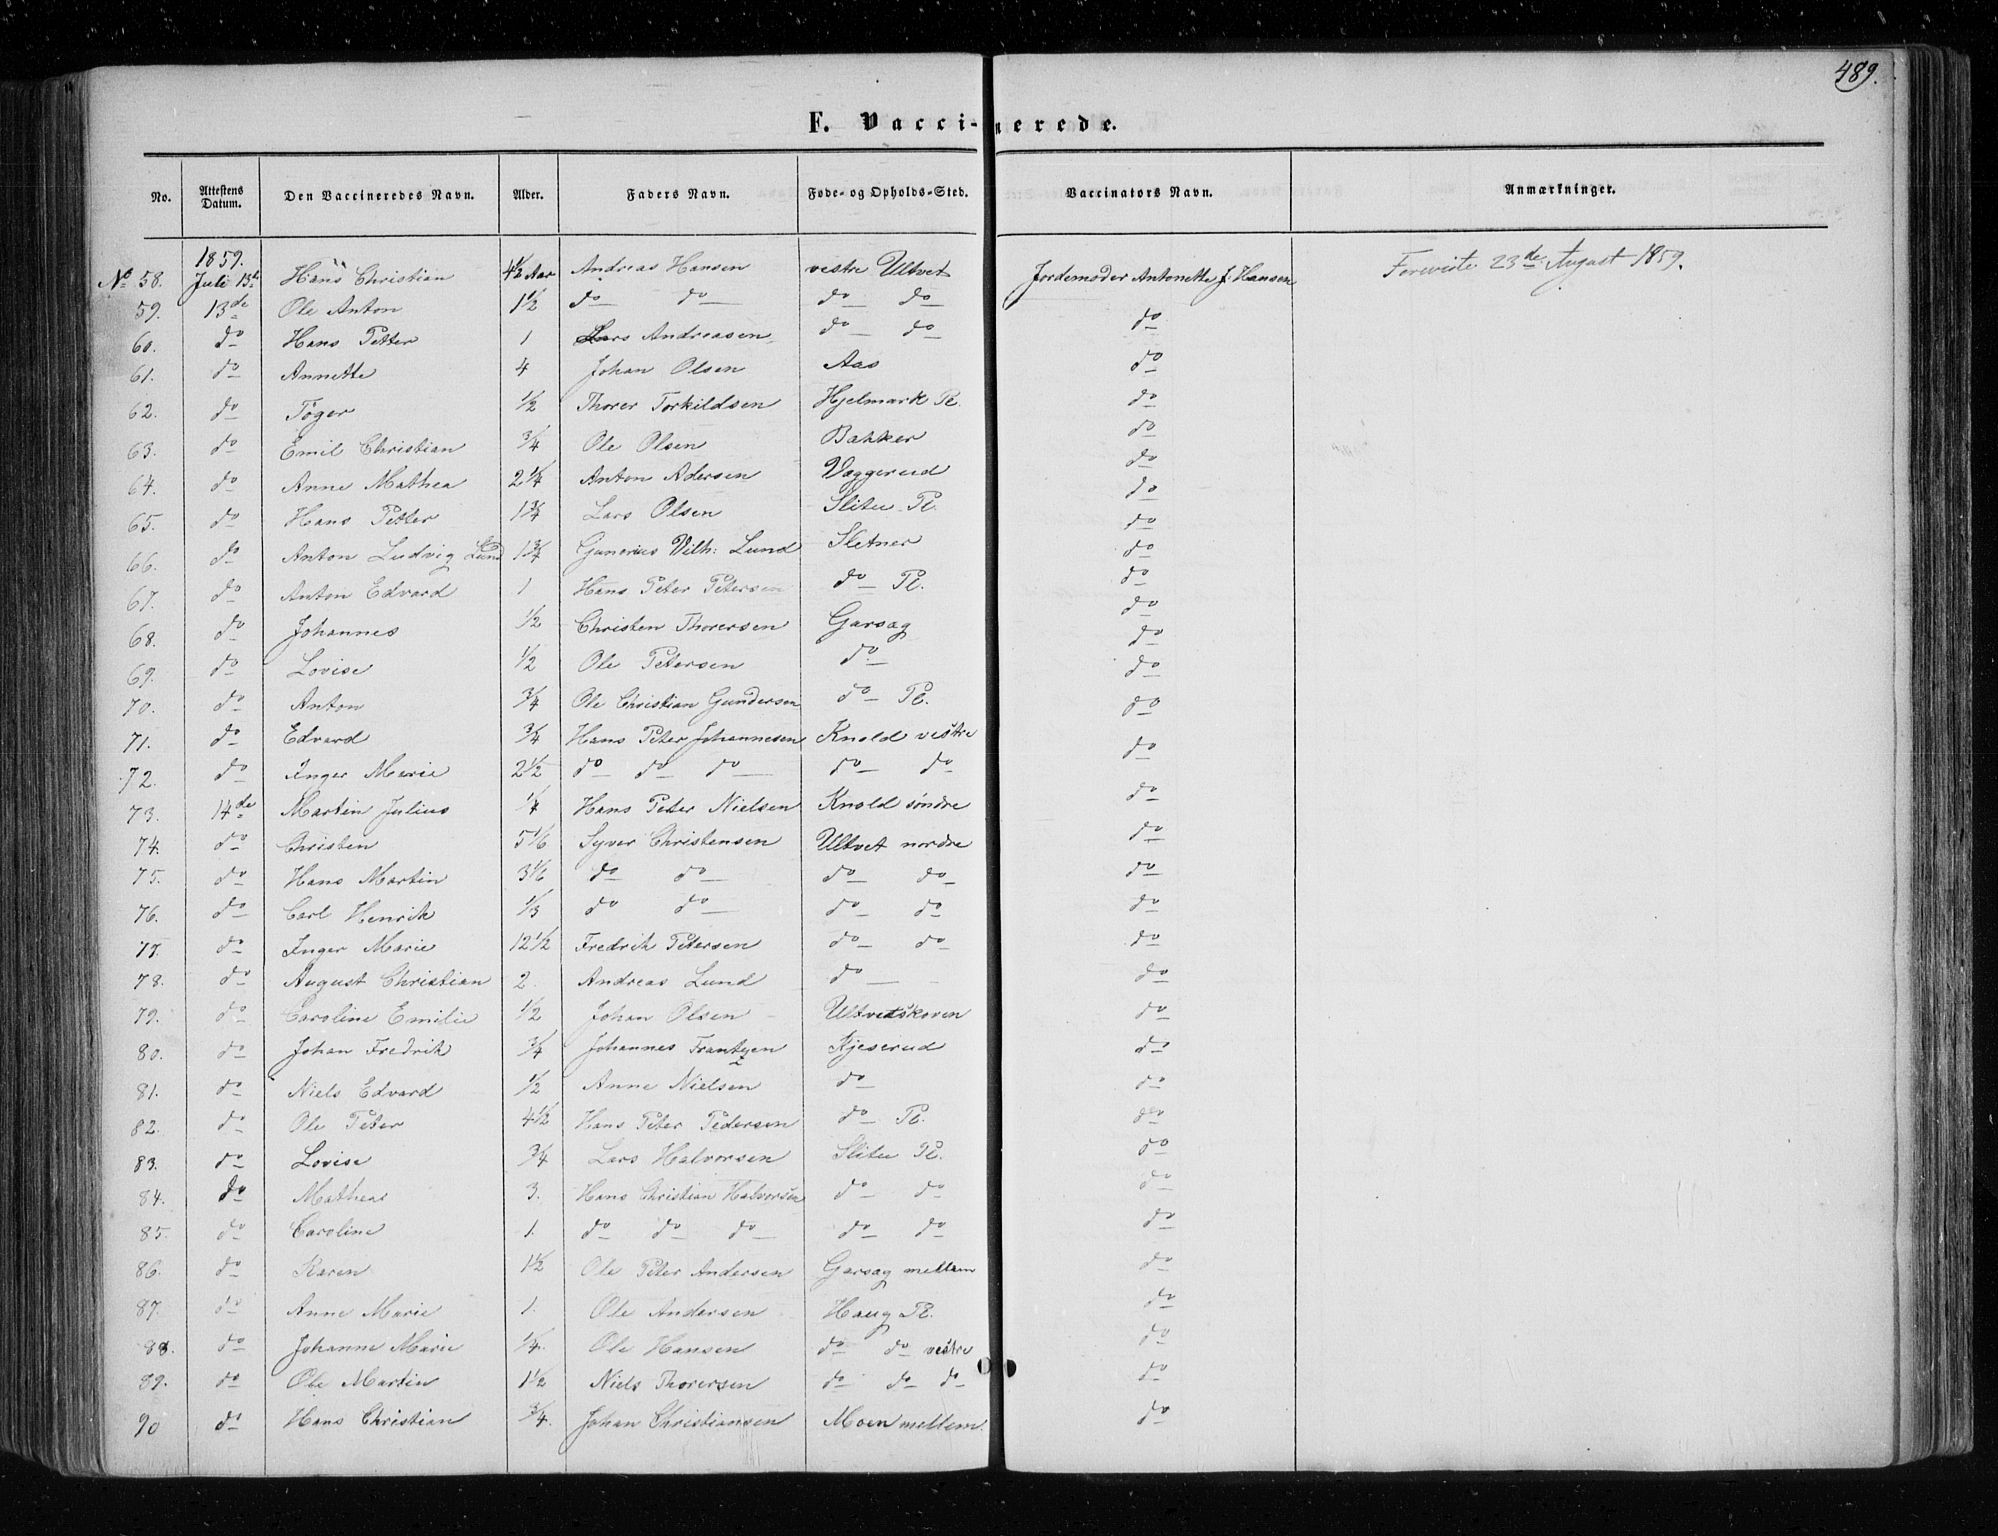 489.
F. Vaccinerede.
No. | Attestens Datum. | Den Vaccineredes Navn. | Alder. | Faders Navn. | Føde- og Opholds-Sted. | Vaccinators Navn. | Anmærkninger.
1859.
No 58. | Juli 13de | Hans Christian | 4½ Aar | Andreas Hansen | vestre Ultvet | Jordemoder Antonette J. Hansen | Foreviste 23de August 1859.
59. | 13de | Ole Anton | 1½ | do do | do do | do
60. | do | Hans Petter | 1 | Lars Andreasen | do do | do
61. | do | Annette | 4 | Johan Olsen | Aas | do
62. | do | Töger | ½ | Thorer Torkildsen | Hjelmark Pl. | do
63. | do | Emil Christian | ¾ | Ole Olsen | Bakker | do
64. | do | Anne Mathea | 2¼ | Anton Adersen | Vaggerud | do
65. | do | Hans Petter | 1¾ | Lars Olsen | Slitu Pl. | do
66. | do | Anton Ludvig Lund | 1¾ | Gunerius Vilh: Lund | Sletner | do
67. | do | Anton Edvard | 1 | Hans Peter Petersen | do Pl. | do
68. | do | Johannes | ½ | Christen Thorersen | Garsag | do
69. | do | Lovise | ½ | Ole Petersen | do | do
70. | do | Anton | ¾ | Ole Christian Gundersen | do Pl. | do
71. | do | Edvard | ¾ | Hans Peter Johannesen | Knold vestre | do
72. | do | Inger Marie | 2½ | do do do | do do | do
73. | 14de | Martin Julius | ¼ | Hans Peter Nielsen | Knold søndre | do
74. | do | Christen | 5 1/6 | Syver Christensen | Ultvet nordre | do
75. | do | Hans Martin | 3 1/6 | do do | do do | do
76. | do | Carl Henrik | 1/3 | do do | do do | do
77. | do | Inger Marie | 12½ | Fredrik Petersen | do do | do
78. | do | August Christian | 2. | Andreas Lund | do | do
79. | do | Caroline Emilie | ½ | Johan Olsen | Ultvetskoven | do
80. | do | Johan Fredrik | ¾ | Johannes Frantzen | Kjeserud | do
81. | do | Niels Edvard | ½ | Anne Nielsen | do | do
82. | do | Ole Peter | 4½ | Hans Peter Pedersen | do Pl. | do
83. | do | Lovise | ¾ | Lars Halvorsen | Slitu Pl. | do
84. | do | Mathea | 3. | Hans Christian Halvorsen | do do | do
85. | do | Caroline | 1. | do do do | do do | do
86. | do | Karen | 1½ | Ole Peter Andersen | Garsag mellem | do
87. | do | Anne Marie | 1. | Ole Andersen | Haug Pl. | do
88. | do | Johanne Marie | ¼. | Ole Hansen | do do vestre | do
89. | do | Ole Martin | 1½ | Niels Thorersen | do do do | do
90 | do | Hans Christian | ¾. | Johan Christiansen | Moen mellem. | do